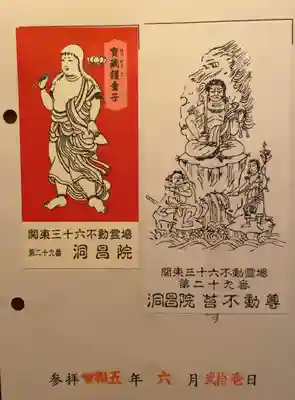 寶蔵護童子
関東三十六不動霊場
第二十九番 洞昌院
関東三十六不動霊場
第二十九番
洞昌院 苔不動尊
参拝 令和五年 六月 弐拾壱日